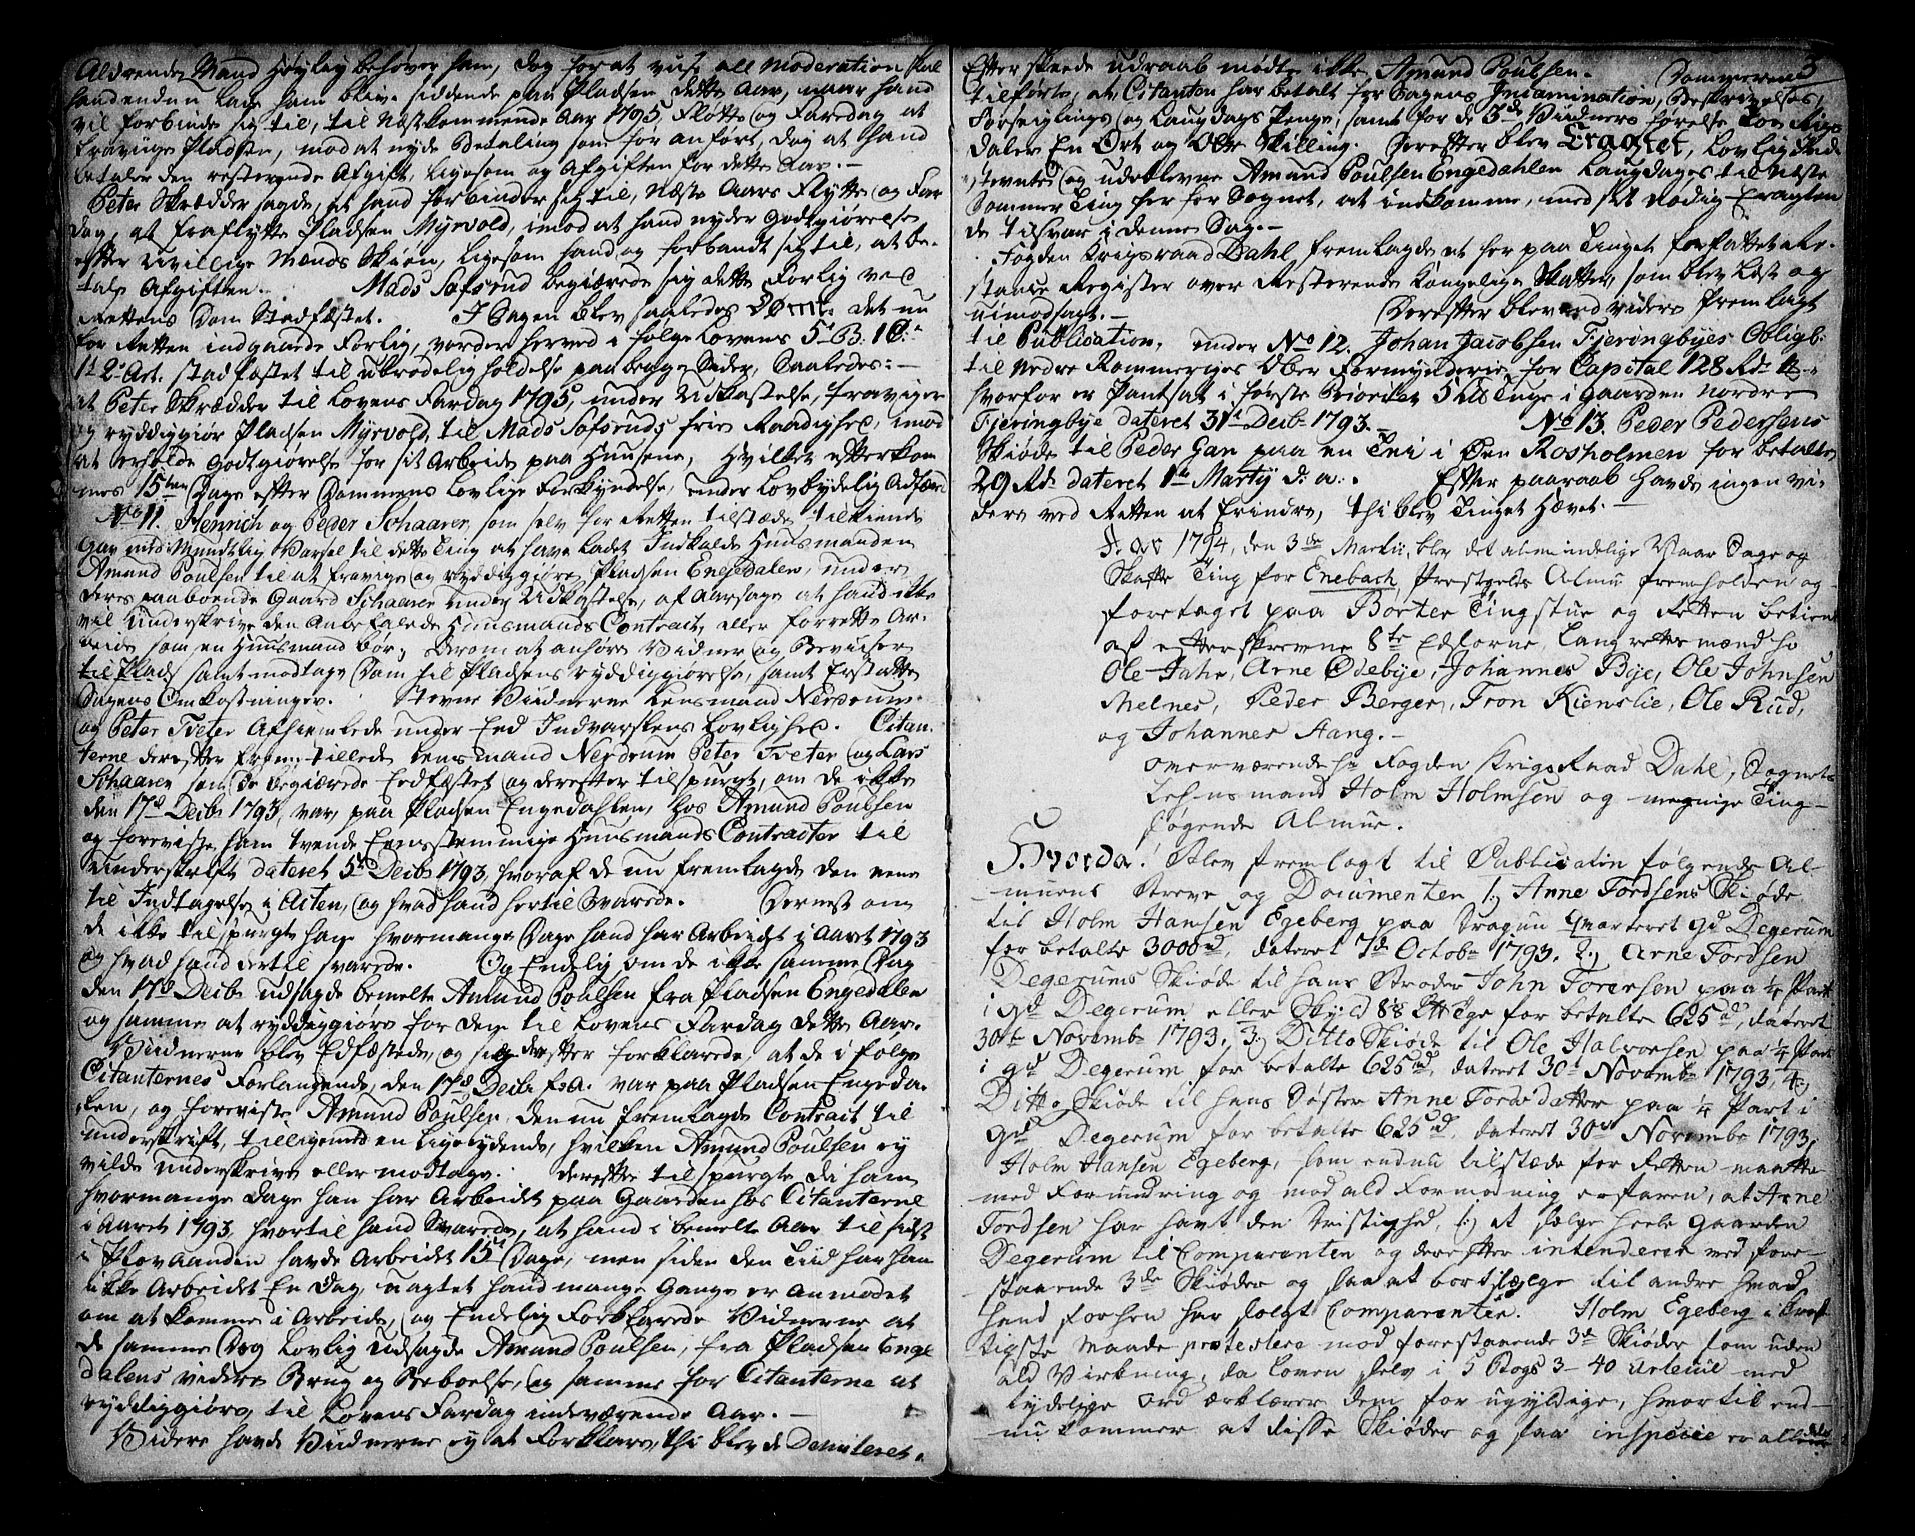 Aldrende Mand Høylig behøver ham, dog for at viise all Moderation skal
hand endnu lade ham blive siddende paa Pladsen dette Aar, naar hand
vil forbinde sig til, til næstkommende Aar 1795 Flytte og Faredag at
fravige Pladsen, mod at nyde Betaling som før anført, dog at hand
betaler den resterende Afgift, ligesom og Afgiften for dette Aar. -
Peter Skrædder sagde, at hand forbinder sig til, næste Aars Flytte og Far
dag, at fraflytte Pladsen Myrvold, imod at hand nyder Godtgiørelse
efter uvillige Mænds Skiøn, ligesom hand og forbandt sig til, at be-
tale Afgiften. - Mads Sofsrud begiærede sig dette Forlig ved
Rettens Dom Stadfæstet. I Sagen blev saaledes Dømt: det nu
for Retten indgaaede Forlig, vorder herved i følge Lovens 5te B: 1te C:
1te 2de Art. stadfæstet til ubrødelig holdelse paa begge Sider, Saaledes: -
at Peter Skrædder til Lovens Fardag 1795, under Udkastelse, fraviger
og ryddiggiør Pladsen Myrvold, til Mads Sofsruds frie Raadighed, imod
at erholde Godtgiørelse for sit Arbeide paa Huusene, Hvilket efterkom
mes 15ten Dage efter Dommens Lovlige Forkyndelse, under Lovbydelig Adfærd
No 11. Henrich og Peder Schaarer, som selv for Retten tilstæde, tilkiende
gav med Mundtlig Varsel til dette Ting at have ladet Indkalde Huusmanden
Amund Poulsen til at fravige og ryddiggiøre Pladsen Engedalen, under
deres paaboende Gaard Schaarer under Udkastelse, af Aarsage at hand ikke
vil Underskrive den Anbefalede HuusmandsContract, eller forrette Ar-
beide som en Huusmand bør, Derom at anhøre Vidner og Beviiser
til Plads samt modtage Dom til Pladsens ryddiggiørelse, samt Erstatte
Sagens Omkostninger. Stevne Vidnerne Lensmand Nerdrum
og Peter Tveter Afhiemlede under Eed Indvarslens Lovlighed. Citan-
terne derefter fremstillede Lensmand Nerdrum Peter Tveter og Lars
Schaarer som de begiærede Eedfæstet og derefter tilspurgt, om de ikke
den 17de Decbr 1793, var, paa Pladsen Engedahlen, hos Amund Poulsen
og foreviiste ham tvende Eensstemmige HuusmandsContracter til
Underskrift dateret 5te Decbr 1793, hvoraf de nu fremlagde den eene
til Indtagelse i Acten, og hvad hand hertil svarede. Dernest om
de ikke tilspurgte ham hvormange Dage hand har Arbeidet i Aaret 1793
og hvad hand dertil svarede. Og Endelig om de ikke samme Dag
den 17de Decbr udsagde bemelte Amund Poulsen fra Pladsen Engedalen
og samme at ryddiggiøre for dem til Lovens Fardag dette Aar.
Vidnerne blev Edfæstede, og siden derefter forklarede, at de i følge
Citanternes Forlangende, den 17de Decbr f.a. var paa Pladsen Engeda-
len, og foreviste Amund Poulsen, den nu fremlagde Contract til
underskrift, tilligemed en ligelydende, hvilken Amund Poulsen ey
vilde underskrive eller modtage. derefter tilspurgte de ham
hvormange Dage han har Arbeidet paa Gaarden hos Citanterne
i Aaret 1793, hvortil hand Svarede, at hand i bemelte Aar til sidst
i Plovaanden havde Arbeidet 15 Dage, men siden den Tiid har han
ikke Arbeidet En Dag, uagtet hand mange Gange er anmodet
om at komme i Arbeide, og Endelig Forklarede Vidnerne at
de samme Dag Lovlig Udsagde Amund Poulsen, fra Pladsen Enge
dalens videre Brug og Beboelse, og samme for Citanterne at
ryddiggiøre, til Lovens Fardag indeværende Aar. -
Videre havde Vidnerne ey at Forklare, thi blev de Demiteret.
3
Efter skeede udraab mødte ikke, Amund Poulsen. Sorenskriveren
tilførte, at Citanten har betalt for Sagens Incamination, Beskrivelses,
Forseiglings og Laugdags Penge, samt for de 3de Vidners førelse Toe Rigs
daler En Ort og Otte Skilling. Derefter blev Eragtet, Lovlig Ind
stevnte og udeblevne Amund Poulsen Engedahlen Laugdages til Næste
Sommer Ting her for Sognet, at indkomme, med sit nødig Eragten
de tilsvar i denne Sag. -
Fogden Krigsraad Dahl fremlagde et her paa Tinget forfattet Re-
stance Register over Resterende Kongelige Skatter, som blev læst og
uimodsagt. - Derefter blev end videre fremlagt
til Publication, under No 12. Johan Jacobsen Fjeringbyes Obligb:
til Nedre Rommeriges Ober Formynderie, for Capital 128 Rdr 1 [?]
hvorfor er Pantsat i første Prioritet 5 Lis Tunge i Gaarden nordre
Fjeringbye dateret 31te Decbr 1793. - No 13. Peder Pedersens
Skiøde til Peder Gan paa en Teii i Øen Rosholmen for betalte
29 Rdr dateret 1te Martij d: a: . Efter paaraab havde ingen vi-
dere ved Retten at Erindre, thi blev Tinget Hævet. -
Ao 1794, den 3de Martii, blev det almindelige Vaar Sage og
Skatte Ting for Enebach Præstgelds Almue fremholden og
foretaget paa Borter Tingstue og Retten betient
af efterskrevne 8te Edsorne, Laugrettesmænd so
Ole Jahr, Arne Ødebye, Johannes Bye, Ole Johnsen
Melnes, Peder Berger, Tron Kienslie, Ole Rud,
og Johannes Aang. -
overværende hr Fogden Krigs Raad Dahl, Sognets
Lehnsmand Holm Holmsen og menige Ting-
søgende Almue.
Hvorda! Blev fremlagt til Publicatin følgende Al-
muens Breve og Documenten 1:) Arne Tordsens Skiøde
til Holm Hansen Egeberg paa Dragun Qvarteret gd Degerum
for betalte 3000 rd, dateret 7de Octobr 1793. 2:) Arne Tordsen
Degerums Skiøde til hans Broder John Torersen paa 1/4 Part
i gd Degerum eller Skyld 8 1/8 Ltge for betalte 625 rd, dateret
30te Novembr 1793. 3:) Ditto Skiøde til Ole Halvorsen paa 1/4 Part
i gd Degerum for betalte 625 rd, dateret 30te Novembr 1793, 4:)
Ditto Skiøde til hans Søster Anne Tordsdatter paa 1/4 Part i
gd Degerum for betalte 625 rd, dateret 30te Novembr 1793,
Holm Hansen Egeberg, som endnu tilstæde for Retten maatte
med Forundring og mod ald Formodning erfaren, at Arne
Tordsen har havt den Dristighed, 1:) at sælge heele Gaarden
Degerum til Comparenten og derefter intenderer med fore-
staaende 3de Skiøder og saa at bortsælge til andre hvad
hand forhen har solgt Comparenten. Holm Egeberg i kraf-
tigste Maade protestere mod forestaaende 3de Skiøder som uden
ald Virkning, da Loven selv i 5 Bogs 3- 40 Articul med
tydelige ord ærklærer dem for ugyldige, hvortil end-
nu kommer at disse Skiøder og saa inspecie er all